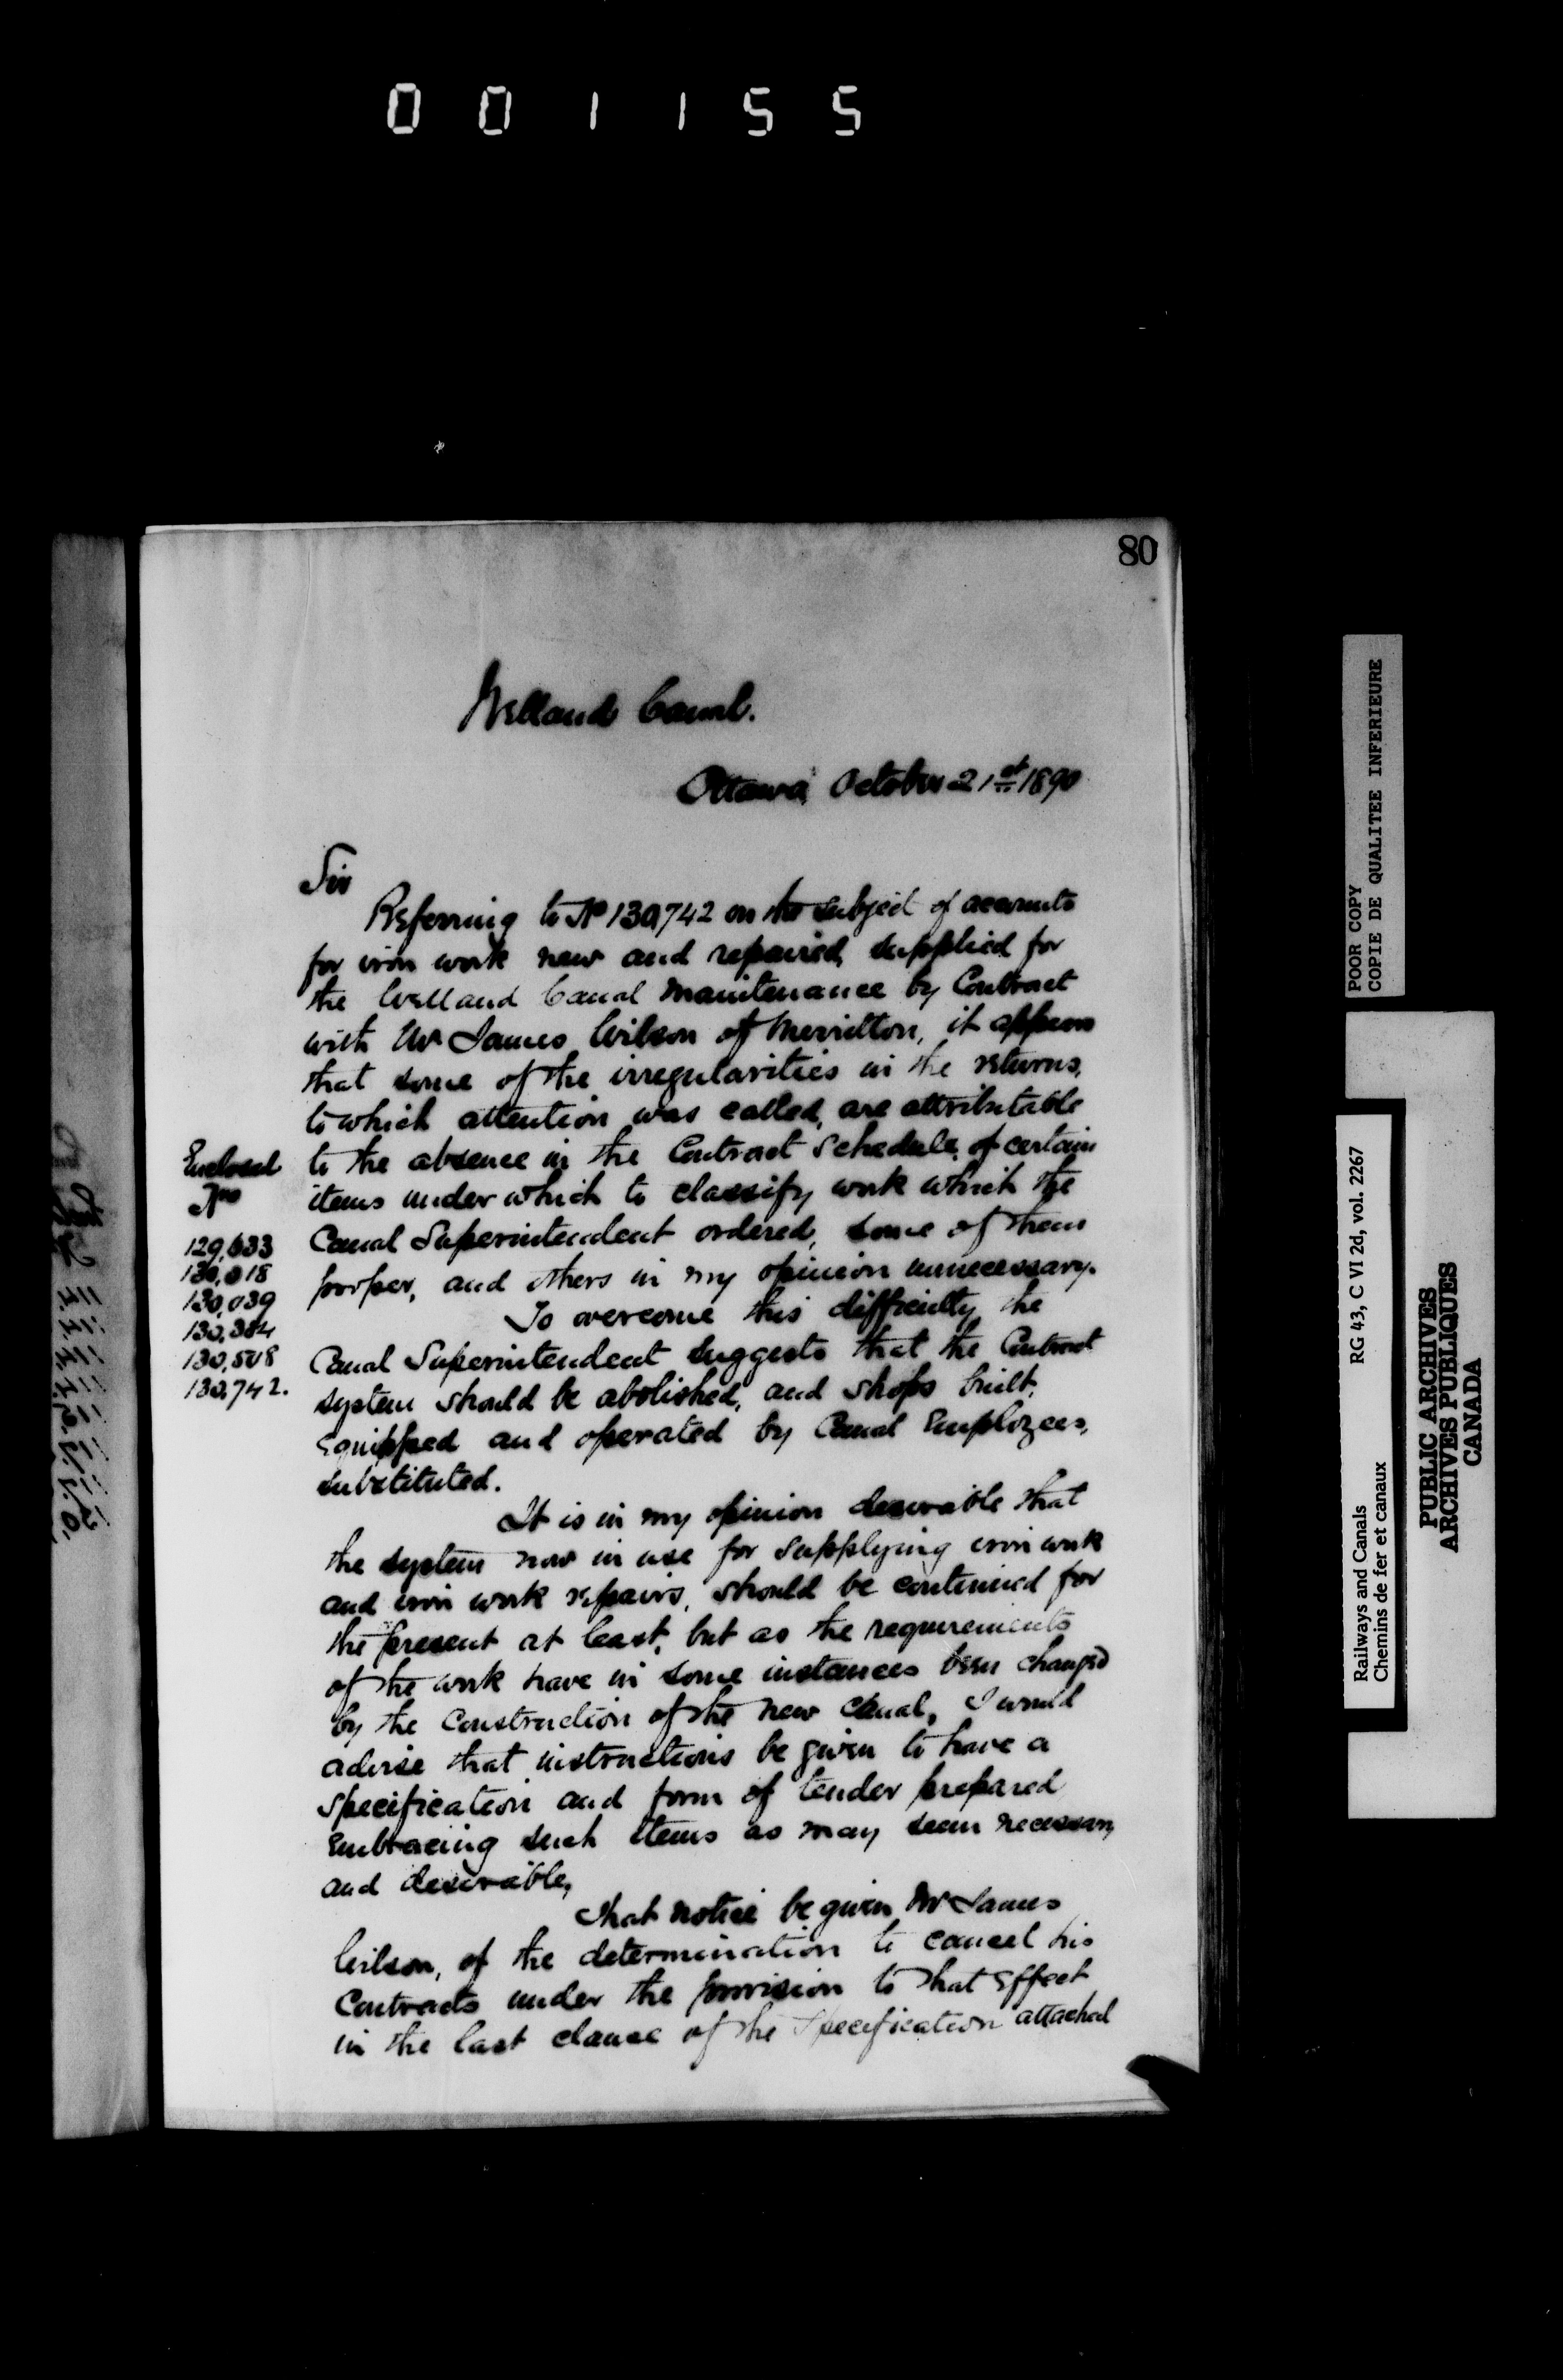 001155
80
Welland Canal.
Ottawa October 21st 1890
Sir
Referring to No 130,742 on the subject of accounts
for iron work new and repaired, supplied for
the Welland Canal maintenance by Contract
with Mr James Wilson of Merritton, it appears
that some of the irregularities in the returns,
to which attention was called, are attributable
to the absence in the Contract Schedule, of certain
items under which to classify work which the
Canal Superintendent ordered, some of them
proper, and others in my opinion unnecessary.
Enclosed
Nos
129,633
130,018
130,039
130,384
130,508
130,742.
To overcome this difficulty the
Canal Superintendent suggests that the Contract
system should be abolished, and shops built,
equipped and operated by Canal Employees,
substituted.
It is in my opinion desirable that
the system now in use for supplying iron work
and iron work repairs, should be continued for
the present at least, but as the requirements
of the work have in some instances been changed
by the Construction of the new Canal, I would
advise that instructions be given to have a
specification and form of tender prepared
embracing such items as may seem necessary
and desirable,
That notice be given Mr James
Wilson, of the determination to cancel his
Contracts under the provision to that effect
in the last clause of the Specification attached
POOR COPY
COPIE DE QUALITEE INFERIEURE
Railways and Canals RG 43, C VI 2d, vol. 2267
Chemins de fer et canaux
PUBLIC ARCHIVES
ARCHIVES PUBLIQUES
CANADA